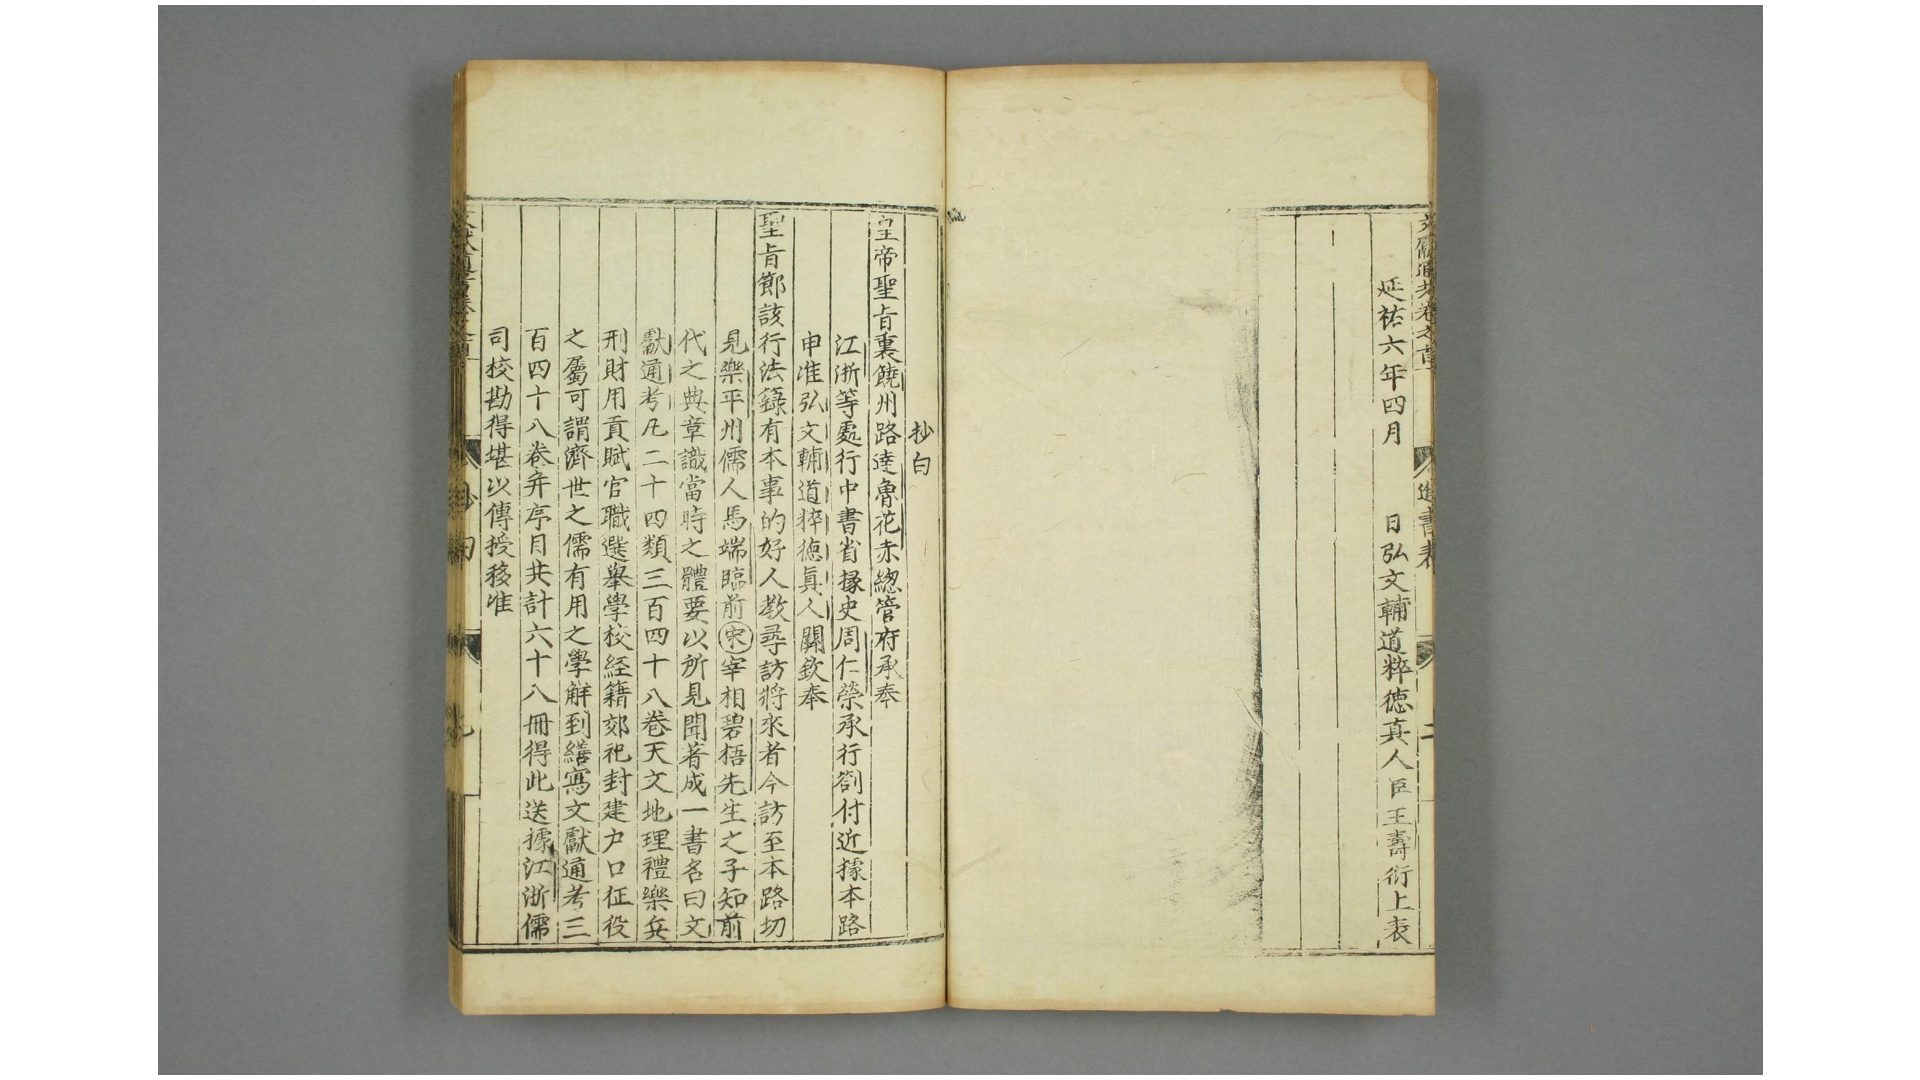 文獻通考卷之首
進書表
二
延祐六年四月 日弘文輔道粹德真人臣王壽衍上表
抄白
皇帝聖旨裏饒州路達魯花赤總管府承奉
江浙等處行中書省掾史周仁榮承行劄付近據本路
申准弘文輔道粹德真人關欽奉
聖旨節該行法籙有本事的好人教尋訪將來者今訪至本路切
見樂平州儒人馬端臨前宋宰相碧梧先生之子知前
代之典章識當時之體要以所見聞著成一書名曰文
獻通考凡二十四類三百四十八卷天文地理禮樂兵
刑財用貢賦官職選舉學校経籍郊祀封建户口征役
之屬可謂濟世之儒有用之學觧到繕寫文獻通考三
百四十八卷并序目共計六十八冊得此送據江浙儒
司校勘得堪以傳授移准